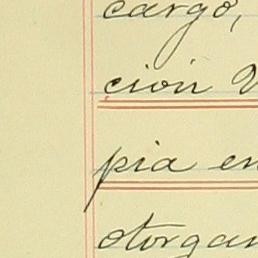 cargo,
ción
pia en
otorgan